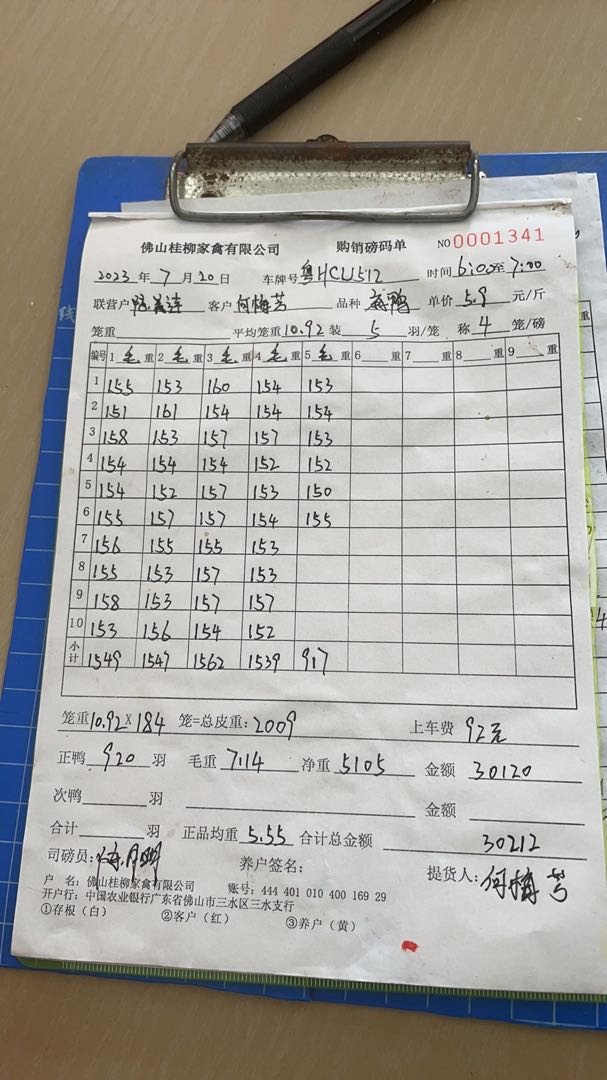 佛山桂柳家禽有限公司 购销磅码单 NO 0001341
2023 年 7 月 20 日 车牌号 粤HCU512 时间 6:00至7:00
联营户 客户 何梅芳 品种 麻鸭 单价 5.9 元/斤
笼重 平均笼重 10.92 装 5 羽/笼 称 4 笼/磅
编号 1 毛 重 2 毛 重 3 毛 重 4 毛 重 5 毛 重 6 重 7 重 8 重 9 重
1 155 153 160 154 153
2 151 161 154 154 154
3 158 153 157 157 153
4 154 154 154 152 152
5 154 152 157 153 150
6 155 157 157 154 155
7 156 155 155 153
8 155 153 157 153
9 158 153 157 157
10 153 156 154 152
小计 1549 1547 1562 1539 917
笼重 10.92 X 184 笼=总皮重: 2009 上车费 92元
正鸭 920 羽 毛重 7114 净重 5105 金额 30120
次鸭 羽 金额
合计 羽 正品均重 5.55 合计总金额 30212
司磅员: 养户签名: 提货人: 何梅芳
户 名: 佛山桂柳家禽有限公司 账号: 444 401 010 400 169 29
开户行: 中国农业银行广东省佛山市三水区三水支行
①存根（白） ②客户（红） ③养户（黄）